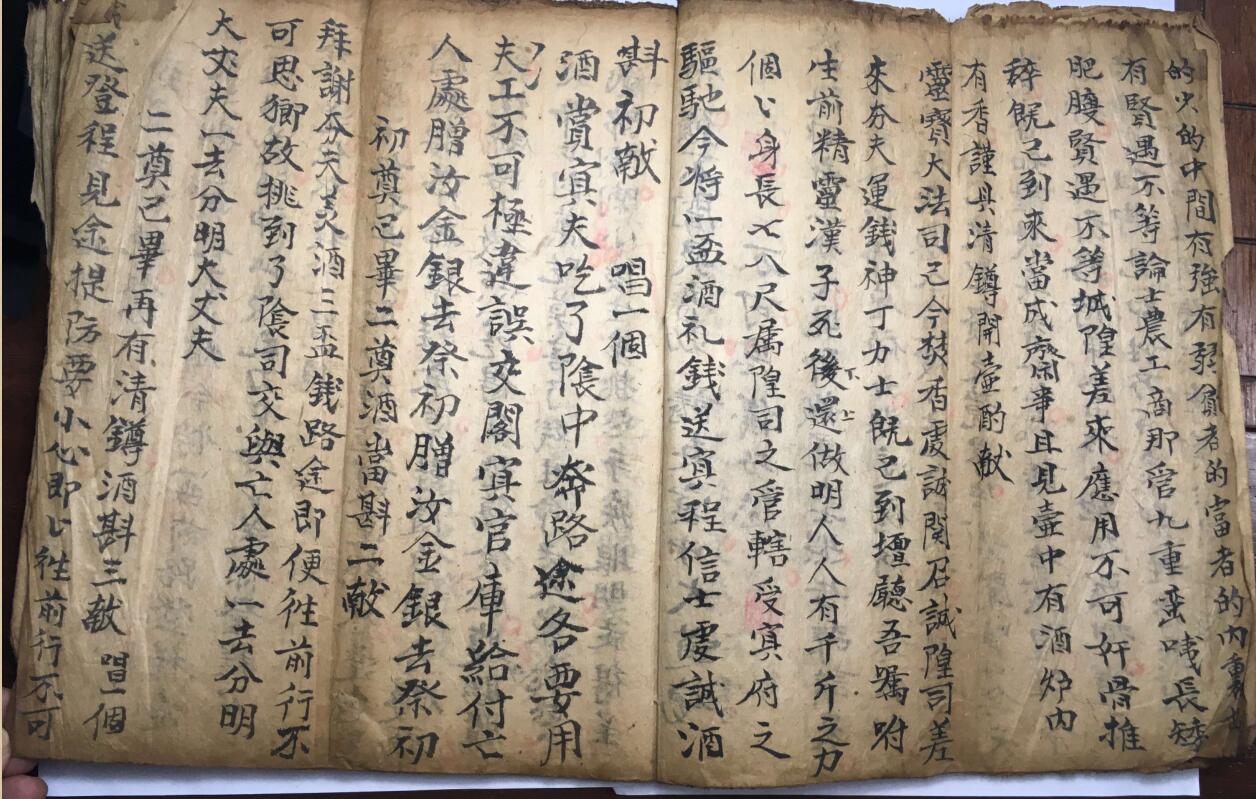 的火的中間有強有弱貧者的富者的內
有賢遇不等論士農工商那管九重蛮咦長矮
肥膄賢遇不等城隍差來應用不可奸骨推
辞既己到來當成齋事且見壺中有酒炉内
有香謹具清鐏開壷酌献
靈寳大法司己今焚香虔誠関召誠隍司差
來夯夫運銭神丁力士既己到壇聽吾嘱咐
生前精靈漢子死後還做明人人有千斤之力
個〻身長七八尺属隍司之管轄受㝠府之
驅馳今將一盃酒礼銭送㝠程信士虔誠酒
斟初献 唱一個
酒賞㝠夫吃了隂中奔路途各要用
夫工不可極違誤交閣㝠官庫給付亡
人處贈汝金銀去祭初贈汝金銀去祭初
初奠己畢二奠酒當斟二献
拜謝夯夫美酒三盃銭路途即便徃前行不
可思鄉故挑到了隂司交與亡人處一去分明
大丈夫一去分明大丈夫
二奠己畢再有清鐏酒斟三献 唱一個
送登程見途提防要小心即〻徃前行不可